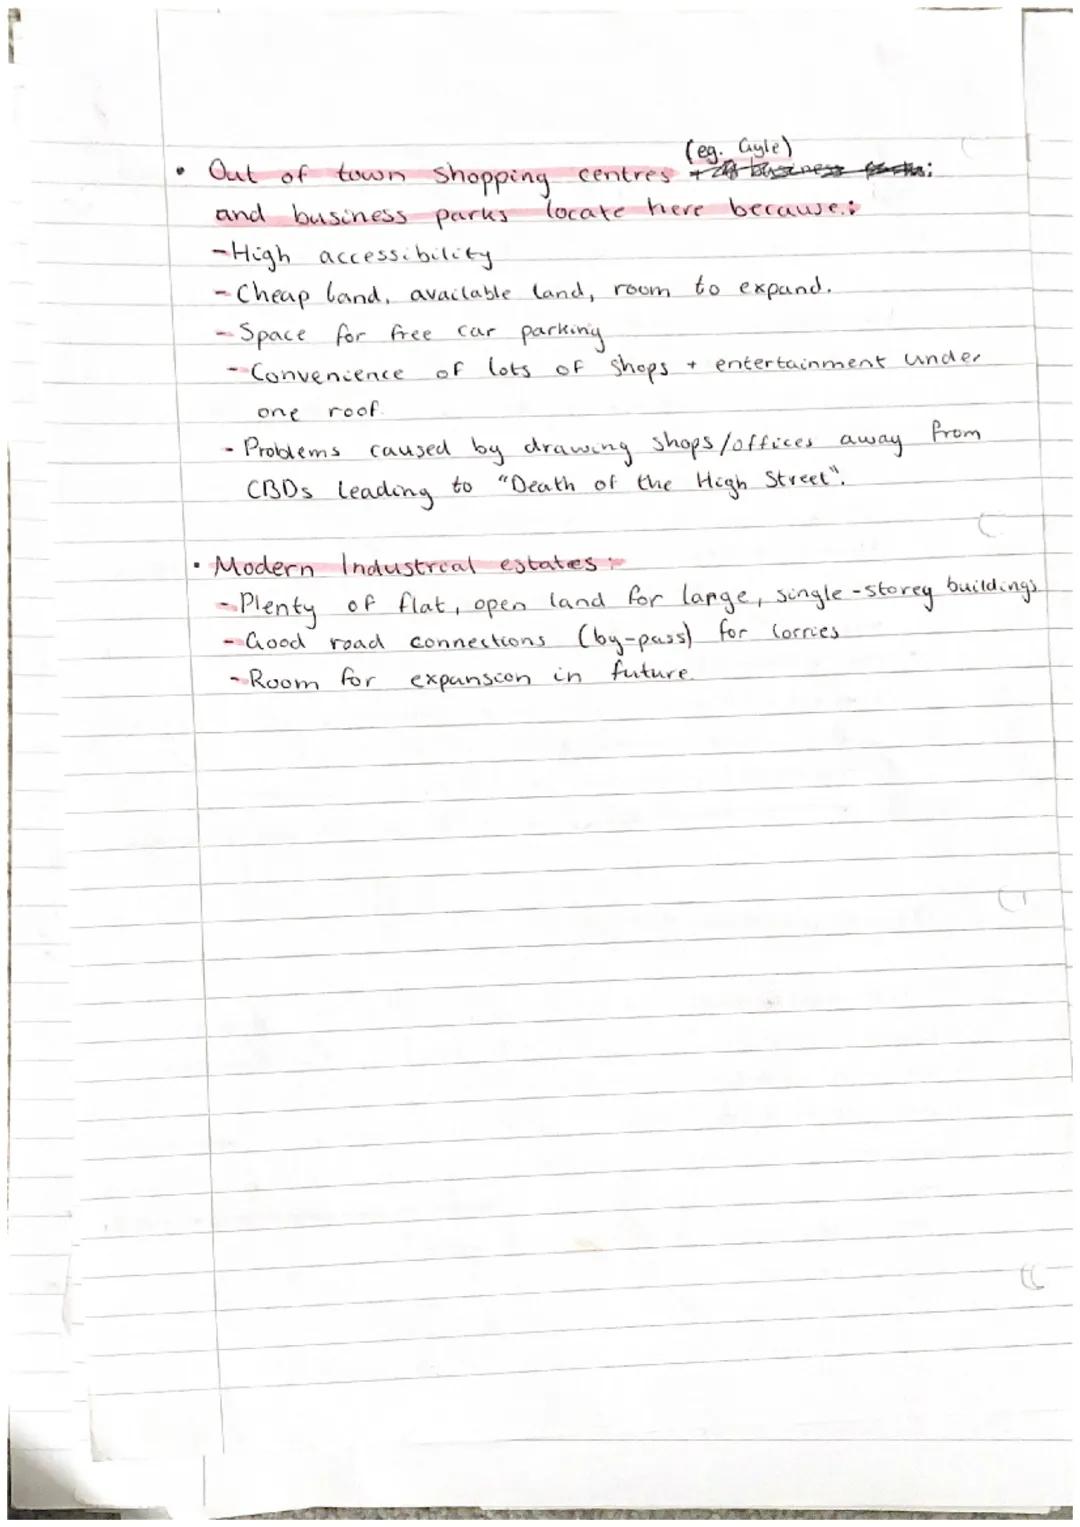 (eg. Gyle)
• Out of town shopping centres + business parks:
and business parks locate here because:
- High accessibility
- Cheap land, available land, room to expand.
- Space for free car parking
- Convenience of lots of shops + entertainment under
one roof.
- Problems caused by drawing shops/offices away from
CBDs leading to "Death of the High Street".
• Modern Industrial estates:
- Plenty of flat, open land for large, single-storey buildings
- Good road connections (by-pass) for lorries
- Room for expansion in future.